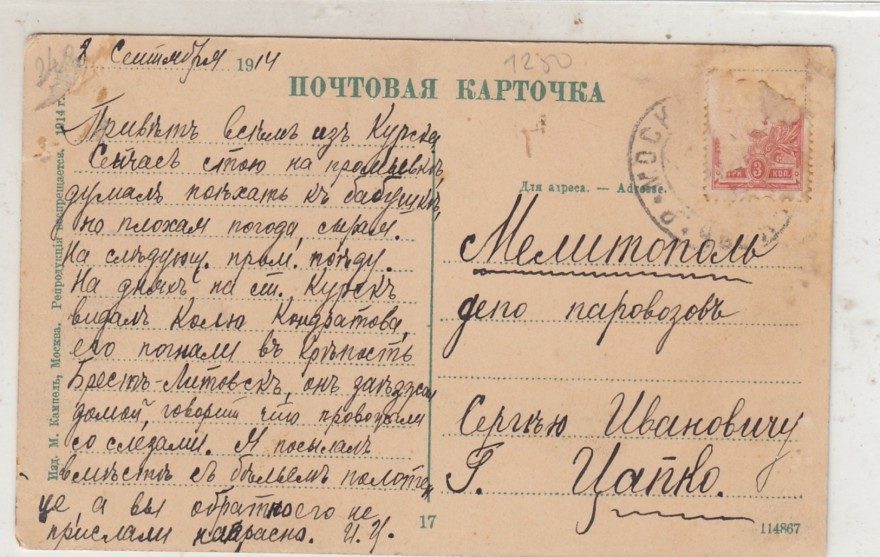 8 Сентября 1914
1280
ПОЧТОВАЯ КАРТОЧКА
Привѣтъ всѣмъ изъ Курска
Сейчасъ стою на промывкѣ,
думалъ поѣхать къ бабушкѣ,
но плохая погода, сырая.
На слѣдующ. пром. поѣду.
На дняхъ на ст. Курскъ
видалъ Колю Кондратова,
его погнали въ крѣпость
Брестъ-Литовскъ, онъ заѣзжал
домой, говорит что провожали
со слезами. Я посылалъ
вмѣстѣ съ бѣльемъ полотен
це, а вы обратно его не
прислали напрасно. И. Ц.
Для адреса. — Adresse.
МОСК
ТРИ 3 КОП.
Мелитополь
депо паровозовъ
Сергѣю Ивановичу
Г. Цапко.
Изд. М. Кампель, Москва. Репродукція воспрещается. 1914 г.
17
114867